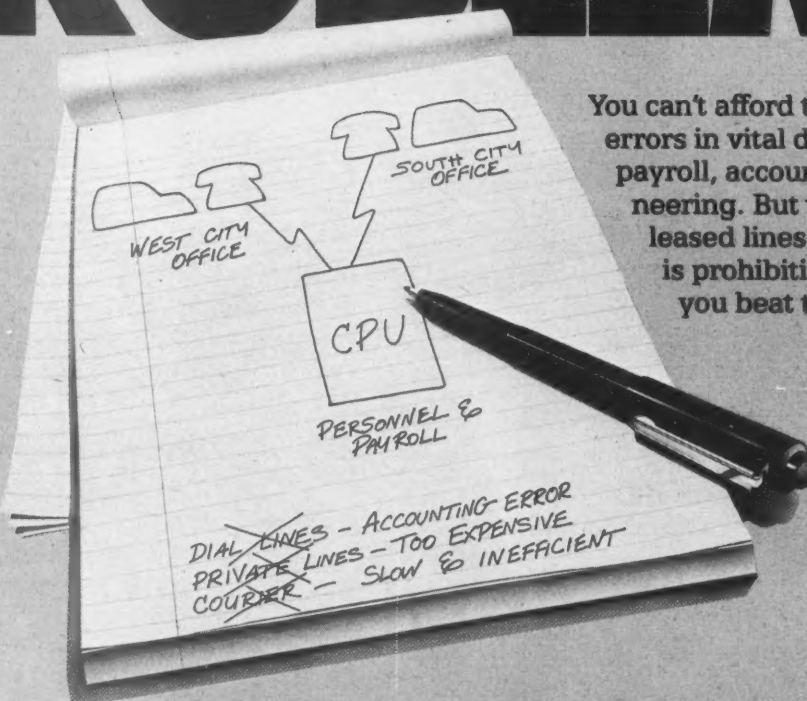 You can't afford
errors in vital
payroll,
But
leased lines
is
you beat
SOUTH CITY
OFFICE
WEST CITY
OFFICE
CPU
PERSONNEL &
PAYROLL
DIAL LINES – ACCOUNTING ERROR
PRIVATE LINES – TOO EXPENSIVE
COURIER – SLOW & INEFFICIENT